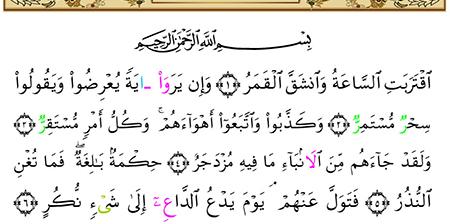 بِسْمِ ٱللَّهِ ٱلرَّحْمَٰنِ ٱلرَّحِيمِ
ٱقْتَرَبَتِ ٱلسَّاعَةُ وَٱنشَقَّ ٱلْقَمَرُ ﴿١﴾ وَإِن يَرَوْا۟ ءَايَةً يُعْرِضُوا۟ وَيَقُولُوا۟
سِحْرٌ مُّسْتَمِرٌّ ﴿٢﴾ وَكَذَّبُوا۟ وَٱتَّبَعُوٓا۟ أَهْوَآءَهُمْ ۚ وَكُلُّ أَمْرٍ مُّسْتَقِرٌّ ﴿٣﴾
وَلَقَدْ جَآءَهُم مِّنَ ٱلْأَنۢبَآءِ مَا فِيهِ مُزْدَجَرٌ ﴿٤﴾ حِكْمَةٌۢ بَٰلِغَةٌ ۖ فَمَا تُغْنِ
ٱلنُّذُرُ ﴿٥﴾ فَتَوَلَّ عَنْهُمْ ۘ يَوْمَ يَدْعُ ٱلدَّاعِ إِلَىٰ شَىْءٍ نُّكُرٍ ﴿٦﴾